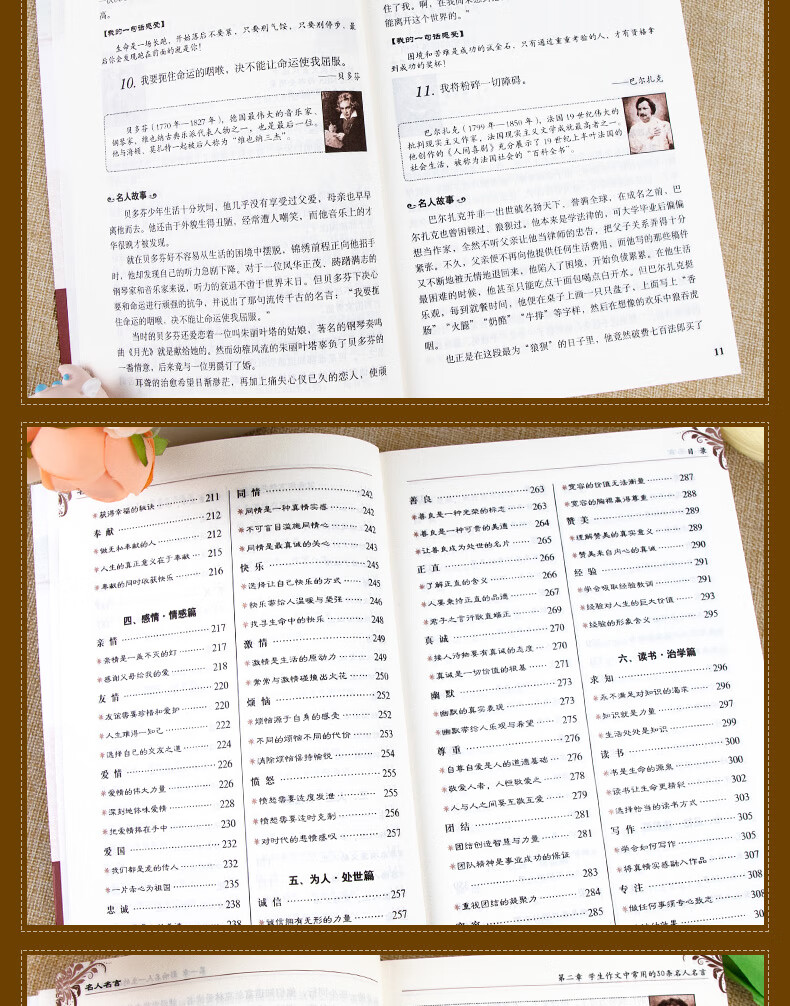 高。
【我的一句话感受】
生命是一场长跑，开始落后不要紧，只要别气馁，只要别停步，最
后你会发现跑在前面的就是你！
10. 我要扼住命运的咽喉，决不能让命运使我屈服。
——贝多芬
贝多芬（1770年—1827年），德国最伟大的音乐家、
钢琴家，维也纳古典乐派代表人物之一，也是最后一位。
他与海顿、莫扎特一起被后人称为“维也纳三杰”。
名人故事
贝多芬少年生活十分坎坷，他几乎没有享受过父爱，母亲也早早
离他而去。他还由于外貌生得丑陋，经常遭人嘲笑，而他音乐上的才
华很晚才被发现。
就在贝多芬好不容易从生活的困境中摆脱，锦绣前程正向他招手
时，他却发现自己的听力急剧下降。对于一位风华正茂、踌躇满志的
钢琴家和音乐家来说，听力的衰退不啻于世界末日。但贝多芬下决心
要和命运进行顽强的抗争，并说出了那句流传千古的名言：“我要扼
住命运的咽喉，决不能让命运使我屈服。”
当时的贝多芬还爱恋着一位叫朱丽叶塔的姑娘，著名的钢琴奏鸣
曲《月光》就是献给她的。然而幼稚风流的朱丽叶塔辜负了贝多芬的
一番情意，后来竟与一位男爵订了婚。
耳聋的治愈希望日渐渺茫，再加上痛失心仪已久的恋人，使顽
能离开这个世界的。”
【我的一句话感受】
困境和苦难是成功的试金石，只有通过重重考验的人，才有资格拿
到成功的奖杯！
11. 我将粉碎一切障碍。
——巴尔扎克
巴尔扎克（1799年—1850年），法国19世纪伟大的
批判现实主义作家，法国现实主义文学成就最高者之一。
他创作的《人间喜剧》充分展示了19世纪上半叶法国的
社会生活，被称为法国社会的“百科全书”。
名人故事
巴尔扎克并非一出世就名扬天下、誉满全球，在成名之前，巴
尔扎克也曾困顿过、狼狈过。他本来是学法律的，可大学毕业后偏偏
想当作家，全然不听父亲让他当律师的忠告，把父子关系弄得十分
紧张。不久，父亲便不再向他提供任何生活费用，而他写的那些稿件
又不断地被无情地退回来，他陷入了困境，开始负债累累。在他生活
最困难的时候，他甚至只能吃点干面包喝点白开水。但巴尔扎克挺
乐观，每到就餐时间，他便在桌子上画一只只盘子，上面写上“香
肠”“火腿”“奶酪”“牛排”等字样，然后在想像的欢乐中狼吞虎
咽。
也正是在这段最为“狼狈”的日子里，他竟然破费七百法郎买了
11
获得幸福的秘诀 211
奉献 212
做无私奉献的人 212
人生的真正意义在于奉献 215
奉献的同时收获快乐 216
四、感情·情感篇
亲情 217
亲情是一盏不灭的灯 217
感谢父母给我的爱 218
友情 220
友谊需要珍惜和爱护 220
人生难得一知己 222
选择自己的交友之道 224
爱情 226
爱情的伟大力量 226
深刻地体味爱情 228
把爱情握在手中 230
爱国 232
我们都是龙的传人 232
一片赤心为祖国 235
忠诚 238
238
同情 242
同情是一种真情实感 242
不可盲目滥施同情心 242
同情是最真诚的关心 243
快乐 245
选择让自己快乐的方式 245
快乐带给人温暖与坚强 246
找寻生命中的快乐 248
激情 249
激情是生活的原动力 249
常常与激情碰撞出火花 250
烦恼 252
烦恼源于自身的感受 252
不同的烦恼不同的代价 253
消除烦恼保持愉悦 254
愤怒 255
愤怒需要适度发泄 255
愤怒需要适时克制 256
对时代的悲愤感叹 257
五、为人·处世篇
诚信 257
诚信拥有无形的力量 257
目录
善良 263
善良是一种光荣的标志 263
善良是一种可贵的美德 264
让善良成为处世的名片 265
正直 266
了解正直的含义 266
人要秉持正直的品德 267
君子之言行耿直端正 269
真诚 270
接人待物要有真诚的态度 270
真诚是一切价值的根基 271
幽默 273
幽默的真实表现 273
幽默带给人乐观与希望 275
尊重 276
自尊自爱是人的道德基础 276
敬爱人者，人恒敬爱之 278
人与人之间要互敬互爱 279
团结 281
团结创造智慧与力量 281
团队精神是事业成功的保证
283
重视团结的凝聚力 284
285
宽容的价值无法衡量 287
宽容的胸襟赢得尊重 288
赞美 289
理解赞美的真实意义 289
赞美来自内心的真诚 290
经验 291
学会吸取经验教训 291
经验对人生的巨大价值 293
经验的形象含义 295
六、读书·治学篇
求知 296
永不满足对知识的渴求 296
知识就是力量 297
生活处处是知识 299
读书 300
书是生命的源泉 300
读书让生命更精彩 302
选择恰当的读书方式 303
写作 305
学会如何写作 305
将真情实感融入作品 307
专注 308
做任何事须专心致志 308
名人名言
第二章 学生作文中常用的30条名人名言